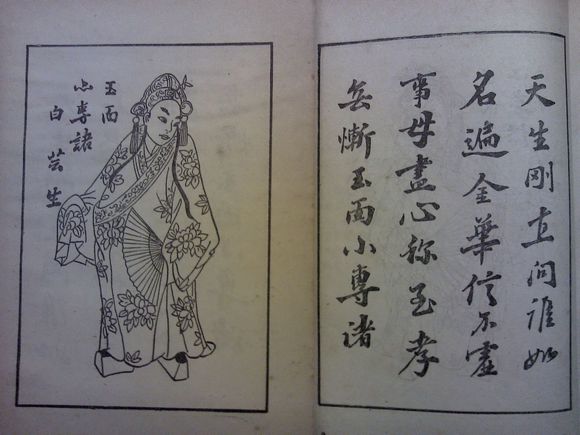 天生剛直问誰如
名遍金華信不虛
事母盡心称至孝
無慚玉面小專诸
玉面
小專諸
白芸生